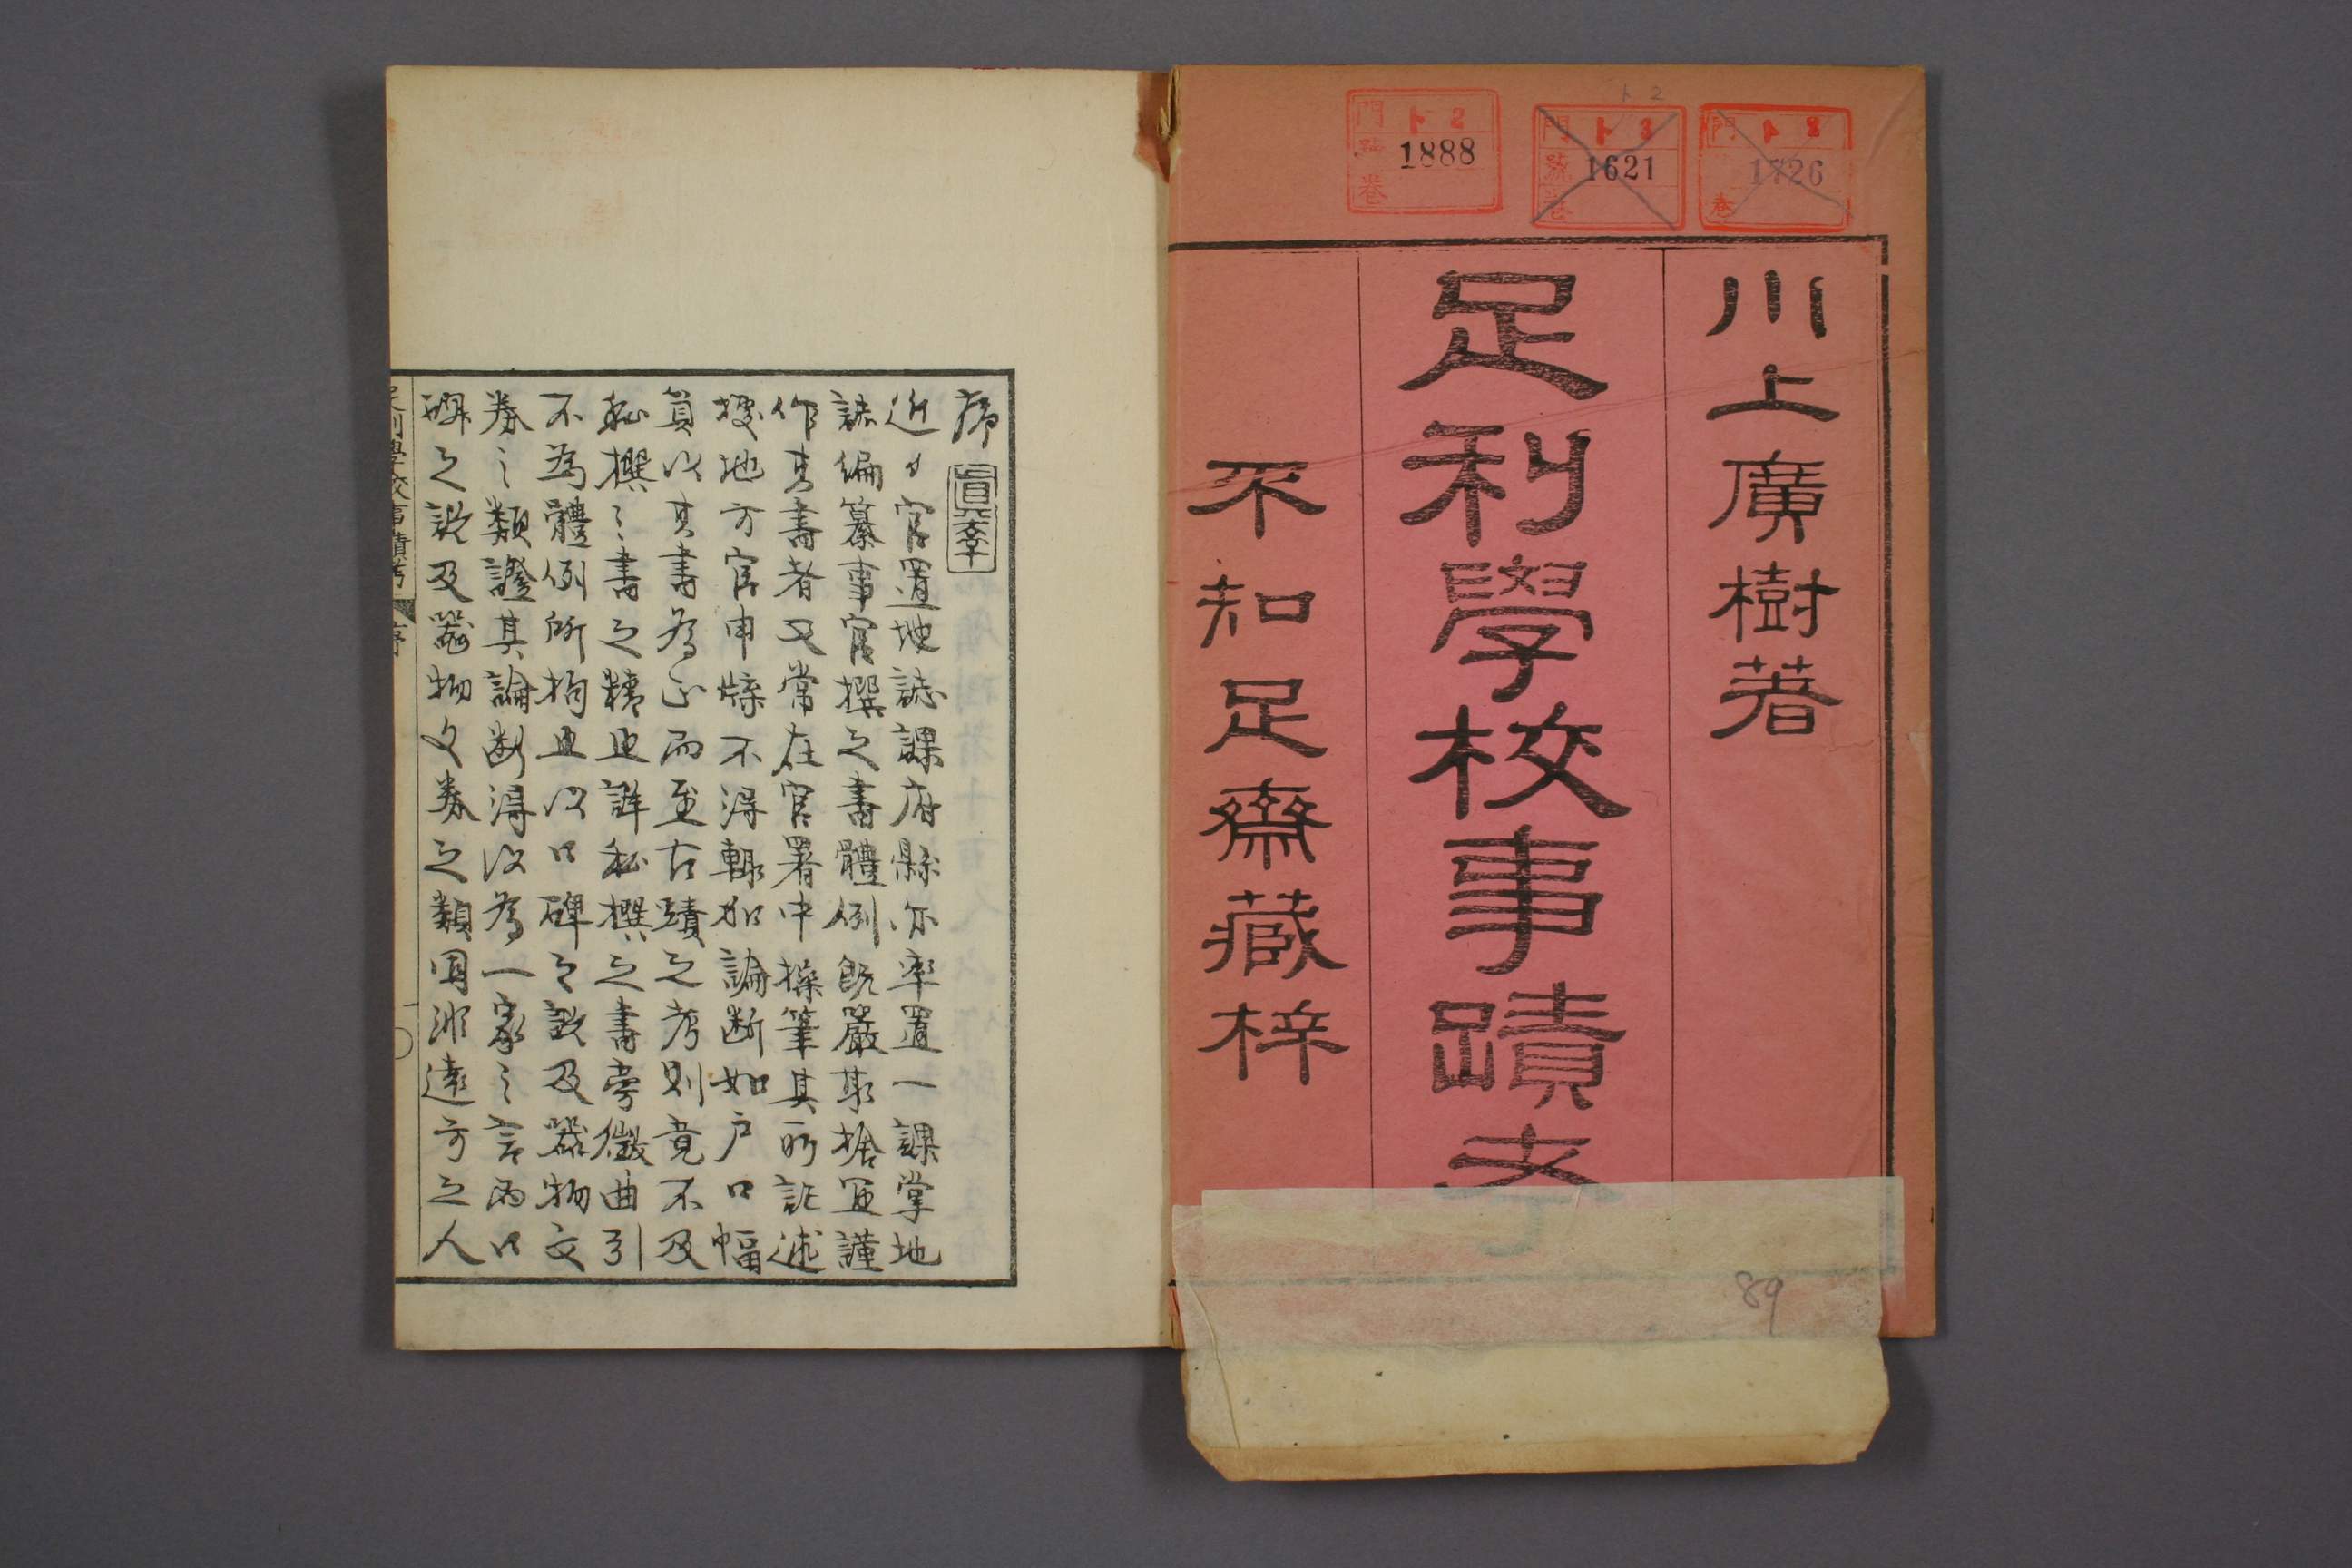 川上廣樹著
足利學校事蹟考
不知足齋藏梓
門 ト2
1888
卷
ト2
門 ト2
號 1621
卷
門
1726
卷
89
序
近日官置地誌課府縣亦率置一課掌地
誌編纂事官撰之書體例既嚴取捨宜謹
作其書者又常在官署中操筆其所記述
據地方官申牒不得輒加論斷如戶口幅
員以其書為正而至古蹟之考則竟不及
私撰之書之精且詳私撰之書旁徵曲引
不為體例所拘且以口碑之說及器物文
券之類證其論斷得以為一家之言而口
碑之說及器物文券之類固非遠方之人
足利學校事蹟考 序 一